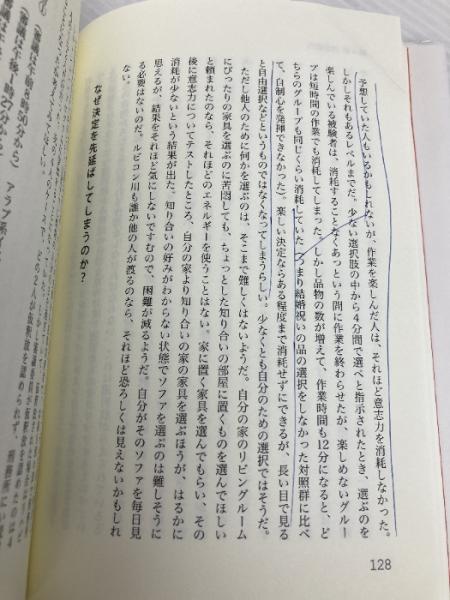 予想していた人もいるかもしれないが、作業を楽しんだ人は、それほど意志力を消耗しなかった。
しかしそれもあるレベルまでだ。少ない選択肢の中から4分間で選べと指示されたとき、選ぶのを
楽しんでいる被験者は、消耗することなくあっという間に作業を終わらせたが、楽しめないグルー
プは短時間の作業でも消耗してしまった。しかし品物の数が増えて、作業時間も12分になると、ど
ちらのグループも同じくらい消耗していた(つまり結婚祝いの品の選択をしなかった対照群に比べ
て、自制心を発揮できなかった)。楽しい決定ならある程度まで消耗せずにできるが、長い目で見る
と自由選択などというものではなくなってしまうらしい。少なくとも自分のための選択ではそうだ。
ただし他人のために何かを選ぶのは、そこまで難しくはないようだ。自分の家のリビングルーム
にぴったりの家具を選ぶのに苦悶しても、ちょっとした知り合いの部屋に置くものを選んでほしい
と頼まれたのなら、それほどのエネルギーを使うことはない。家に置く家具を選んでもらい、その
後に意志力についてテストしたところ、自分の家より知り合いの家の家具を選ぶほうが、はるかに
消耗が少ないという結果が出た。知り合いの好みがわからない状態でソファを選ぶのは難しそうに
思えるが、結果をそれほど気にしないですむので、困難が減るようだ。自分がそのソファを毎日見
る必要はないのだ。ルビコン川も誰か他の人が渡るのなら、それほど恐ろしくは見えないかもしれ
ない。
なぜ決定を先延ばしてしまうのか?
128
(審議は午前8時50分から)
(審議は午後1時27分から) アラブ系イ